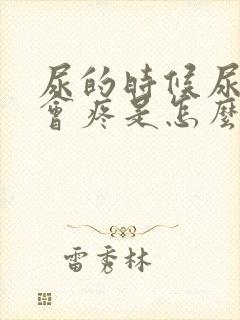 尿的時候尿
會疼是怎麼
雷秀林